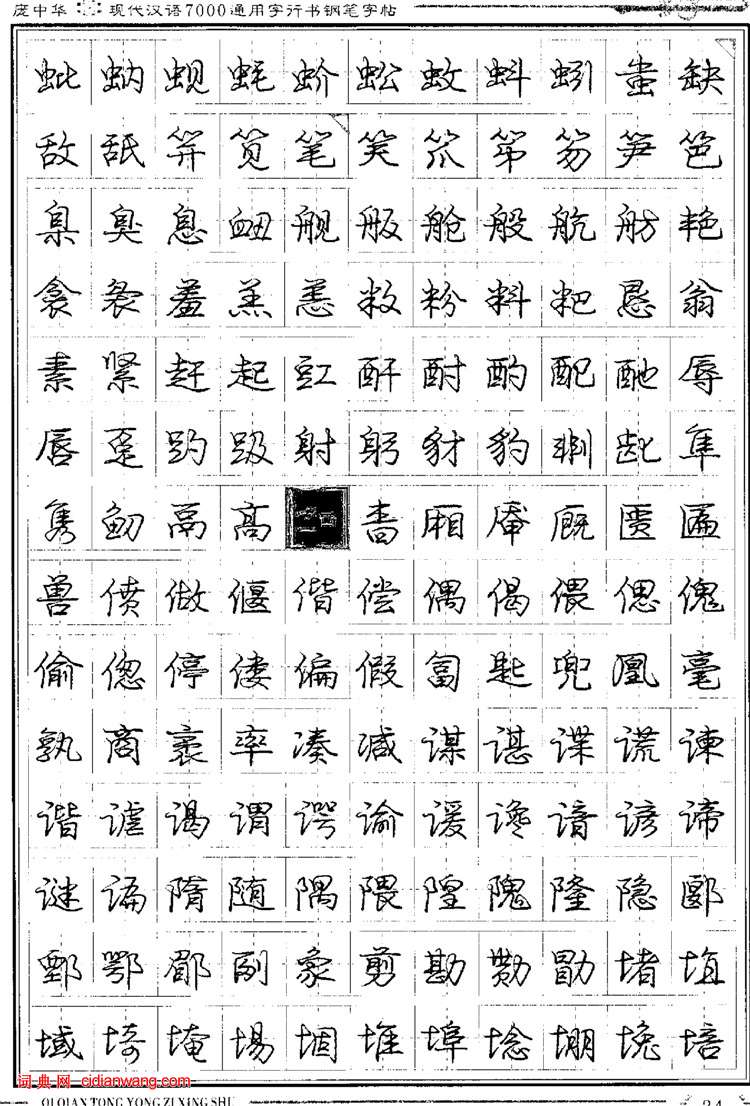 庞中华 现代汉语7000通用字行书钢笔字帖
蚍蚋蚬蚝蚧蚣蚊蚪蚓蚩缺
敌舐笄笕笔笑笊笫笏笋笆
臬臭息衄舰舨舱般航舫艳
衾袅羞羔恙敉粉料粑恳翁
素紧赶起豇酐酎酌配酏辱
唇趸趵趿射躬豺豹龀隼
隽鬲高啬厢厣厩匮匾
兽偾做偃偕偿偶偈偎偲傀
偷偬停偻偏假匐匙兜凰毫
孰商衮率凑减谋谌谍谎谏
谐谑谒谓谔谕谖谗谙谚谛
谜谝隋随隅隈隍隗隆隐郾
鄄鄂郿副象剪勘勚勖堵埴
域埼埯埸堌堆埠埝堋堍培
词典网 cidianwang.com
QI QIAN TONG YONG ZI XING SHU
34